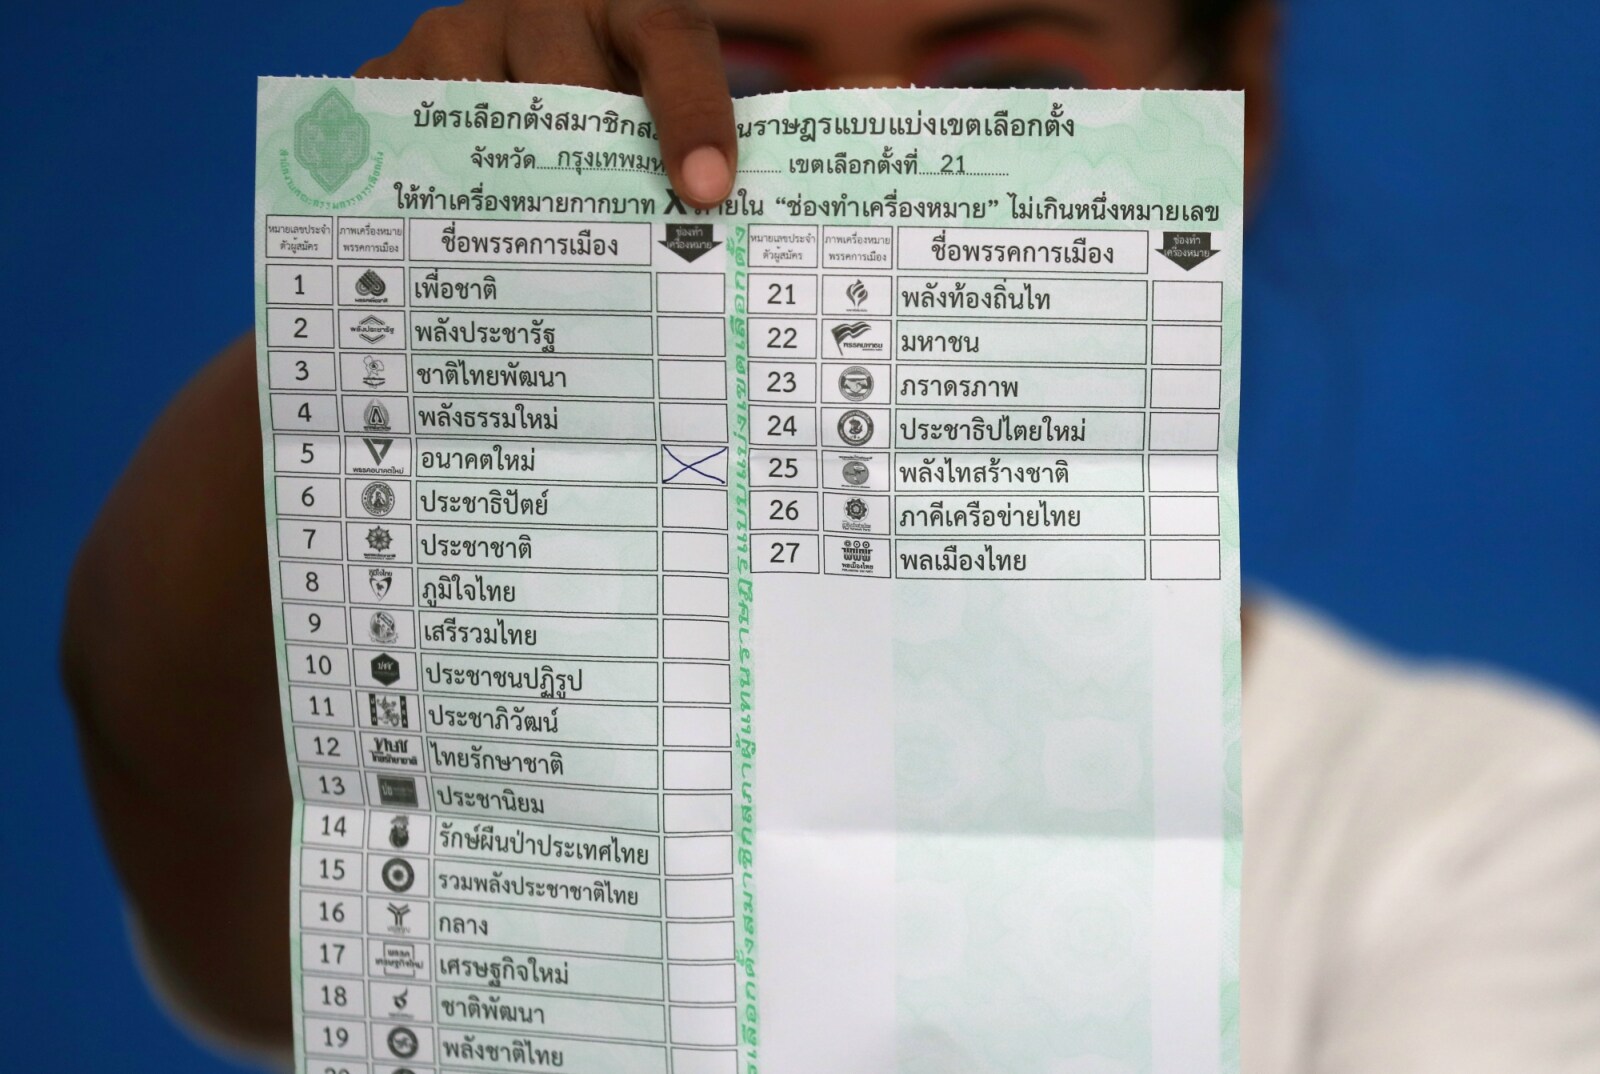 บัตรเลือกตั้งสมาชิกส นราษฎรแบบแบ่งเขตเลือกตั้ง
จังหวัด กรุงเทพมห เขตเลือกตั้งที่ 21
ให้ทำเครื่องหมายกากบาท X ภายใน “ช่องทำเครื่องหมาย” ไม่เกินหนึ่งหมายเลข
หมายเลขประจำตัวผู้สมัคร ภาพเครื่องหมายพรรคการเมือง ชื่อพรรคการเมือง ช่องทำเครื่องหมาย
1 เพื่อชาติ
2 พลังประชารัฐ
3 ชาติไทยพัฒนา
4 พลังธรรมใหม่
5 พรรคอนาคตใหม่ อนาคตใหม่
6 ประชาธิปัตย์
7 ประชาชาติ
8 ภูมิใจไทย ภูมิใจไทย
9 เสรีรวมไทย
10 ปชช ประชาชนปฏิรูป
11 ประชาภิวัฒน์
12 ไทยรักษาชาติ ไทยรักษาชาติ
13 ประชานิยม
14 รักษ์ผืนป่าประเทศไทย
15 รวมพลังประชาชาติไทย
16 กลาง
17 พรรคเศรษฐกิจใหม่ เศรษฐกิจใหม่
18 ชาติพัฒนา
19 พลังชาติไทย
20
หมายเลขประจำตัวผู้สมัคร ภาพเครื่องหมายพรรคการเมือง ชื่อพรรคการเมือง ช่องทำเครื่องหมาย
21 พลังท้องถิ่นไท
22 พรรคมหาชน มหาชน
23 ภราดรภาพ
24 ประชาธิปไตยใหม่
25 พลังไทสร้างชาติ
26 ภาคีเครือข่ายไทย
27 พลเมืองไทย พลเมืองไทย